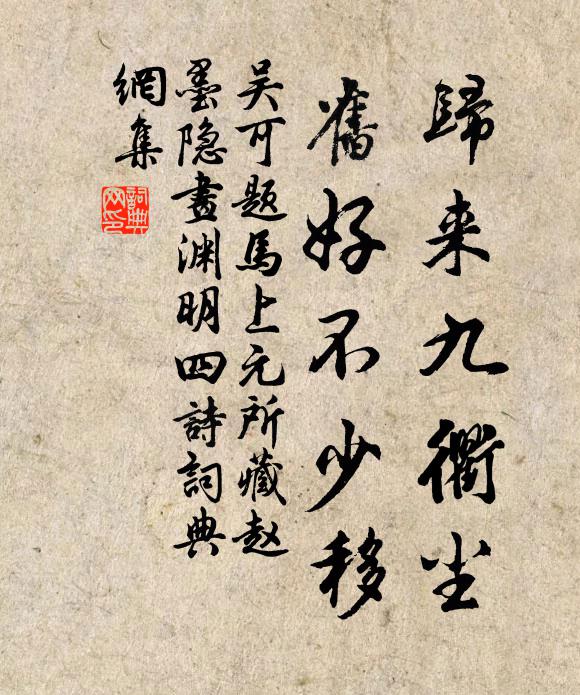 歸来九衢尘
舊好不少移
吴可题馬上元所藏赵
墨隐畫渊明四詩詞典
網集
詞典
网印